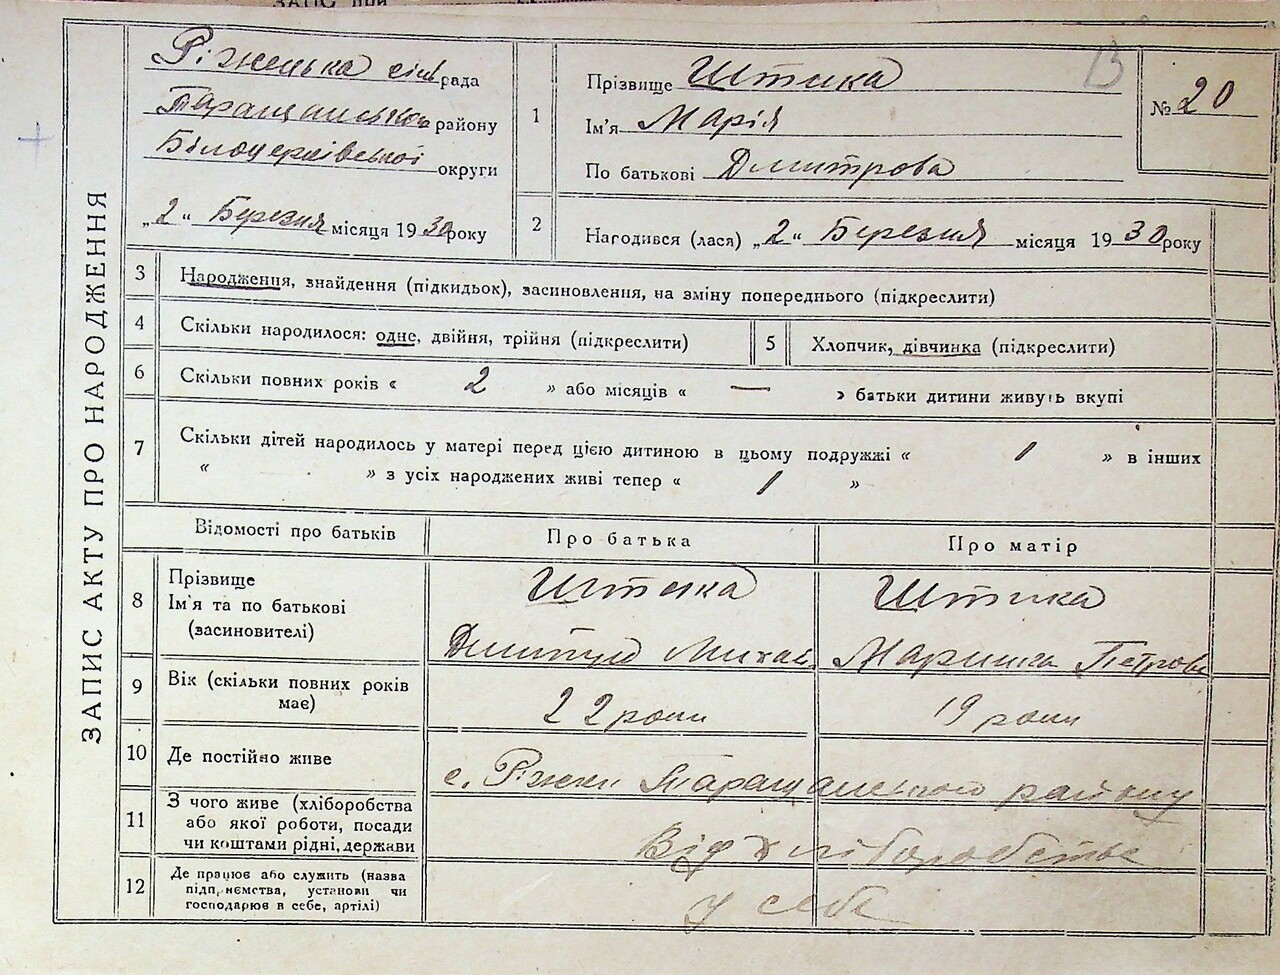 ЗАПИС АКТУ ПРО НАРОДЖЕННЯ
Ріженька сільрада
Таращанського району
Білоцерківської округи
„2“ Березня місяця 1930 року
1 Прізвище Штика
Ім'я Марія
По батькові Дмитрова
№ 20
2 Народився (лася) „2“ Березня місяця 1930 року
3 Народження, знайдення (підкидьок), засиновлення, на зміну попереднього (підкреслити)
4 Скільки народилося: одне, двійня, трійня (підкреслити)
5 Хлопчик, дівчинка (підкреслити)
6 Скільки повних років « 2 » або місяців « — » батьки дитини живуть вкупі
7 Скільки дітей народилось у матері перед цією дитиною в цьому подружжі « 1 » в інших
« » з усіх народжених живі тепер « 1 »
Відомості про батьків Про батька Про матір
8 Прізвище
Ім'я та по батькові
(засиновителі)
Штика
Дмитро Михай.
Штика
Маринка Петрова
9 Вік (скільки повних років
має)
22 роки
19 роки
10 Де постійно живе
с. Ріжки Таращанського району
11 З чого живе (хліборобства
або якої роботи, посади
чи коштами рідні, держави
Від хліборобства
12 Де працює або служить (назва
підприємства, установи чи
господарює в себе, артілі)
у себе